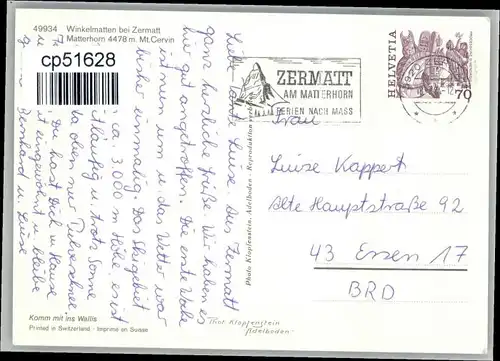 49934 Winkelmatten bei Zermatt
Matterhorn 4478 m. Mt. Cervin
cp51628
Liebe Tante Luise! Aus Zermatt
ganz herzliche Grüße. Wir haben es
hier gut angetroffen. Die erste Woche
ist nun um u. das Wetter war
bisher einmalig. Das Skigebiet
ca. 3.000 m Höhe, es ist
häufig u. trotz Sonne
da oben nur Pulverschnee.
Du hast Dich zu Hause
eingewöhnt u. bleibe
Bernhard u. Luise
Komm mit ins Wallis
Printed in Switzerland - Imprimé en Suisse
Photo Klopfenstein, Adelboden - Reproduktion
Phot Klopfenstein
Adelboden
ZERMATT
AM MATTERHORN
FERIEN NACH MASS
HELVETIA
70
Frau
Luise Kappert
Alte Hauptstraße 92
43 Essen 17
BRD